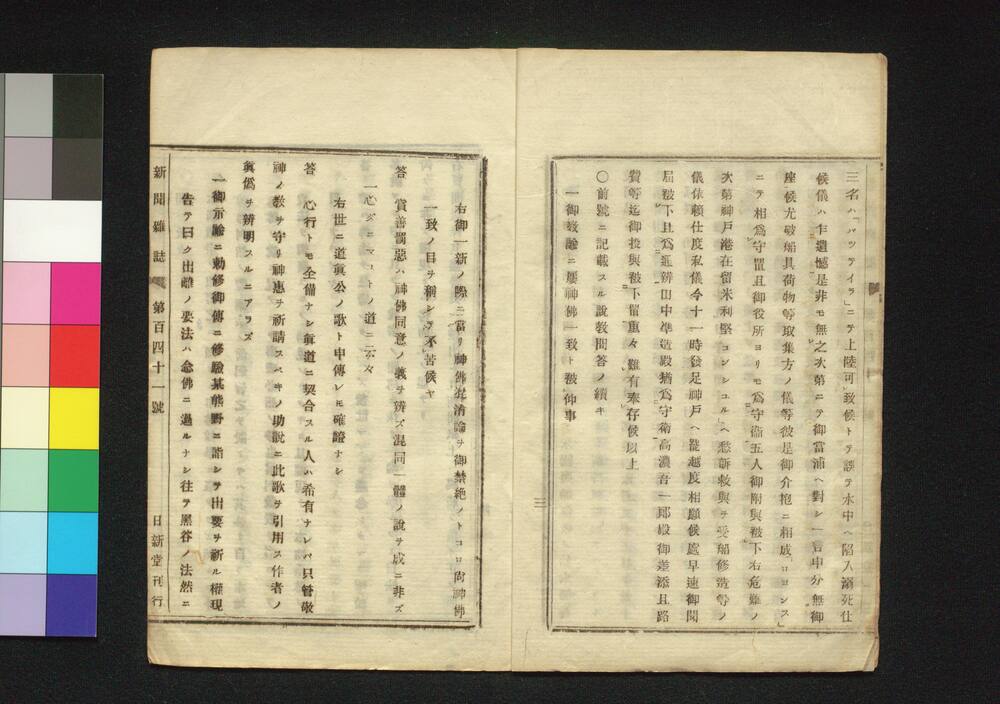 三名ハ「バツテイラ」ニテ上陸可致候トテ誤テ水中ヘ陷入溺死仕
候儀ハ乍遺憾是非モ無之次第ニテ御當浦ヘ對シ一言申分無御
座候尤破船具荷物等取集方ノ儀等彼是御介抱ニ相成「ロコンス」
ニテ相爲守置且御役所ヨリモ爲守衞五人御附與被下右危難ノ
次第神戸港在留米利堅コンシユルヘ愁訴救與ヲ受船修造等ノ
儀依賴仕度私儀今十一時發足神戸ヘ罷越度相願候處早速御聞
屆被下且爲通辨田中準造殿猶爲守衞高濃音一郎殿御差添且路
費等迄御投與被下置重々難有奉存候以上
〇前號ニ記載スル說敎問答ノ續キ
一御敎諭ニ屢神佛一致ト被仰事
三
右御一新ノ際ニ當リ神佛混淆論ヲ御禁絶ノトコロ尙神佛
一致ノ目ヲ稱シテ不苦候ヤ
答 賞善罰惡ハ神佛同意ノ義ヲ辨ズ混同一體ノ說ヲ成ニ非ズ
一心ダニマコトノ道ニ云々
右世ニ道眞公ノ歌ト申傳レモ確證ナシ
答 心行トモ全備ナシ眞道ニ契合スル人ハ希有ナレバ只管敬
神ノ敎ヲ守リ神惠ヲ祈請スベキノ助說ニ此歌ヲ引用ス作者ノ
眞僞ヲ辨明スルニアラズ
一御示諭ニ勅修御傳ニ修驗某熊野ニ詣シテ出要ヲ祈ル權現
告テ曰ク出離ノ要法ハ念佛ニ過ルナシ往テ黑谷ノ法然ニ
新聞雜誌 第百四十一號 日新堂刊行